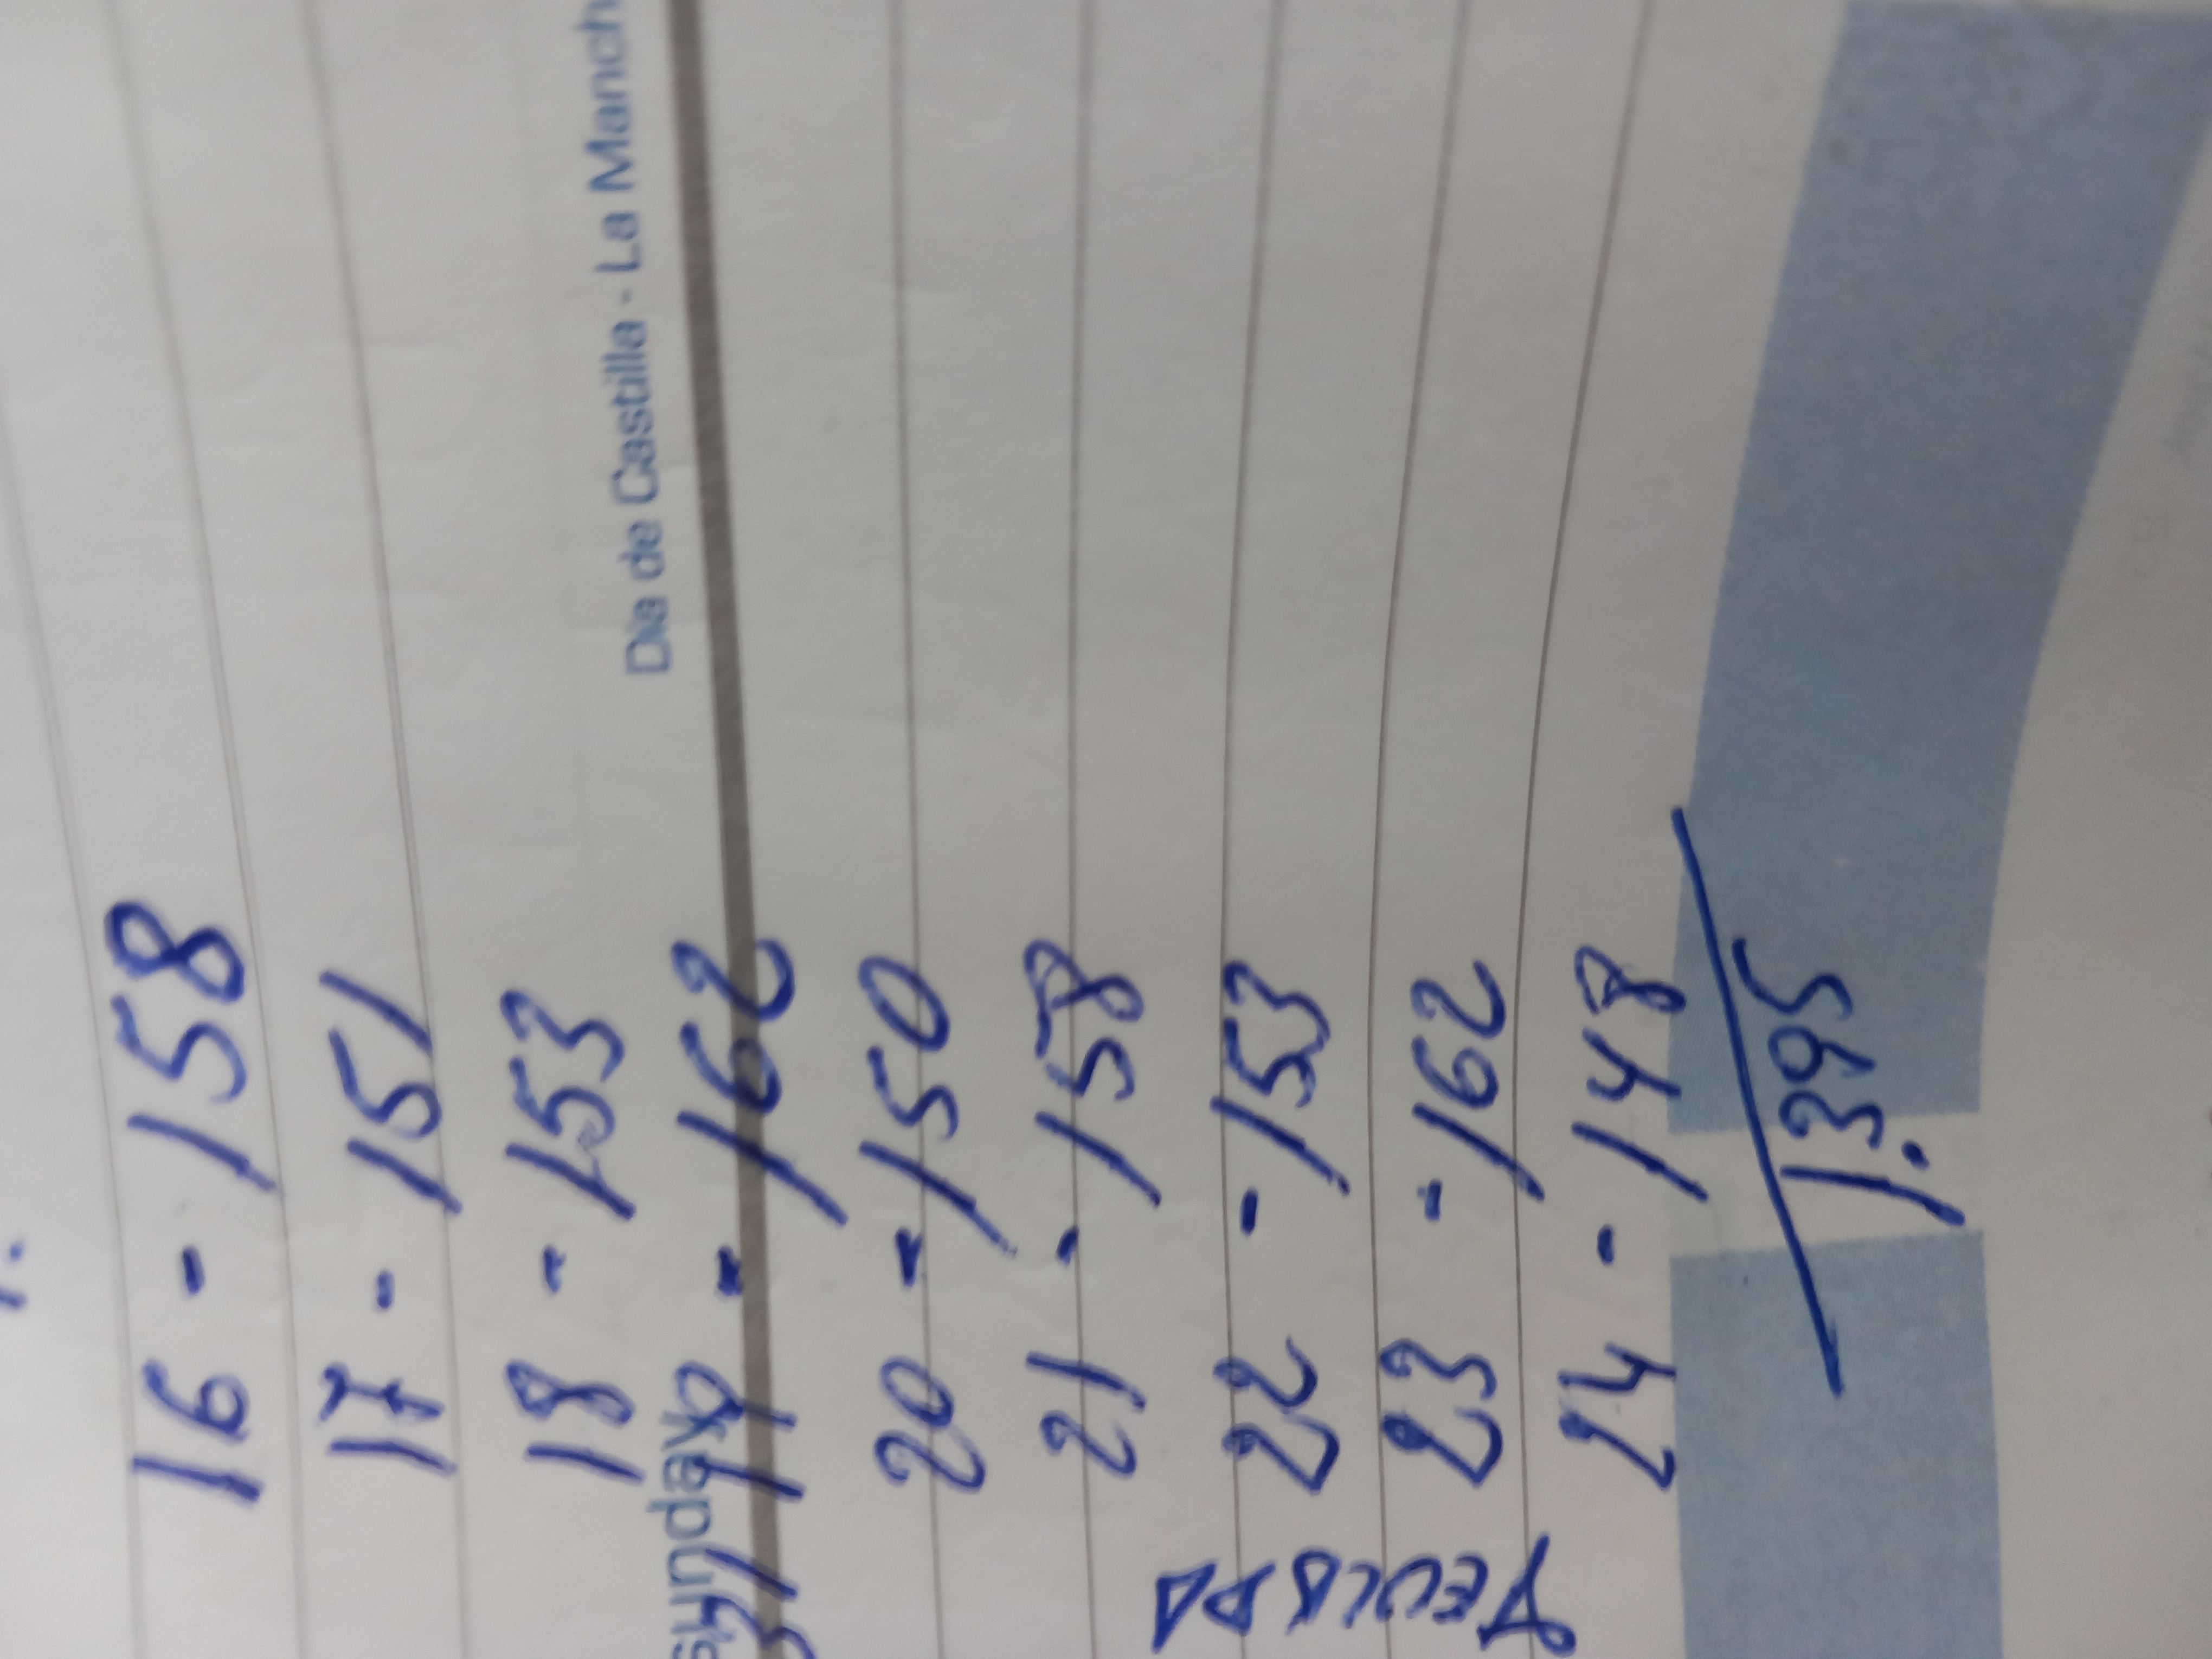 16 - 158
17 - 151
18 - 153
Día de Castilla - La Manch
sunday
31 19 - 162
20 - 150
21 - 158
22 - 153
23 - 162
24 - 148
1.395